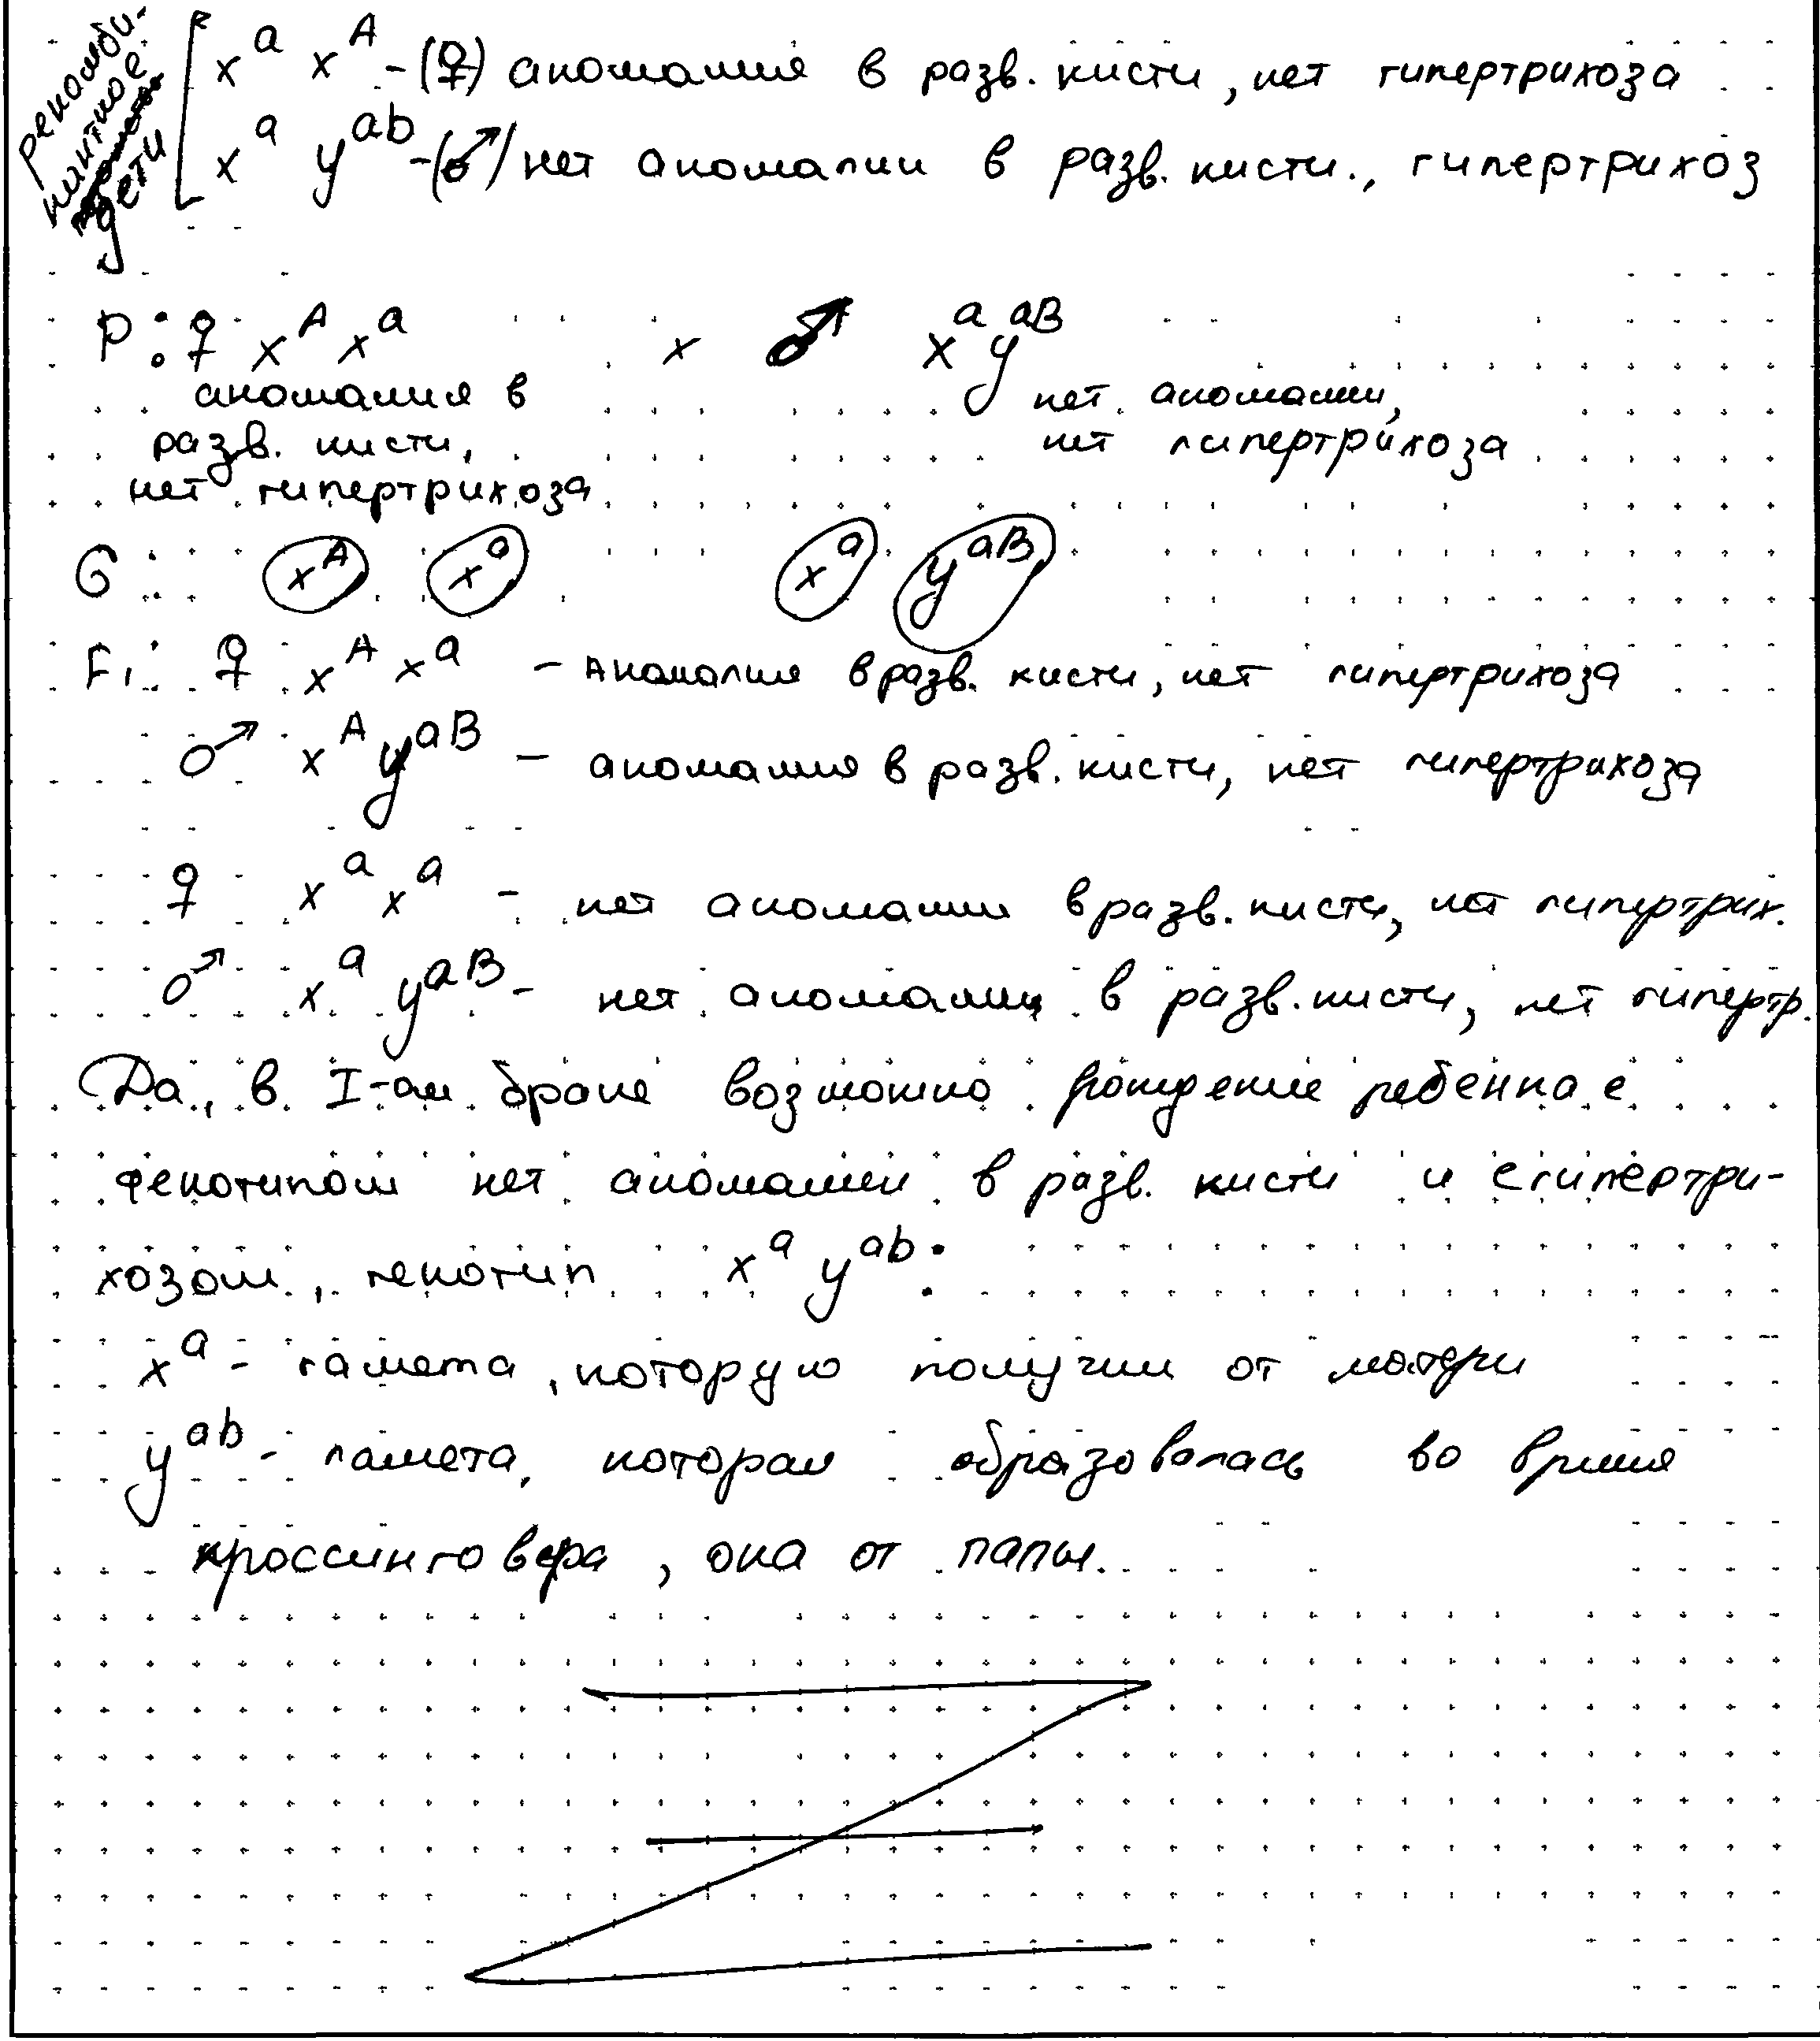 рекомби-
нантное
дети
x^a x^A - (♀) аномалия в разв. кисти, нет гипертрихоза
x^a y^ab - (♂) нет аномалии в разв. кисти., гипертрихоз
P: ♀ x^A x^a × ♂ x^a y^aB
аномалия в нет аномалии,
разв. кисти, нет гипертрихоза
нет гипертрихоза
G: x^A x^a x^a y^aB
F1: ♀ x^A x^a - Аномалия в разв. кисти, нет гипертрихоза
♂ x^A y^aB - аномалия в разв. кисти, нет гипертрихоза
♀ x^a x^a - нет аномалии в разв. кисти, нет гипертрих.
♂ x^a y^aB - нет аномалии в разв. кисти, нет гипертр.
Да, в I-ом браке возможно рождение ребенка с
фенотипом нет аномалии в разв. кисти и с гипертри-
хозом, генотип x^a y^ab:
x^a - гамета, которую получим от матери
y^ab - гамета, которая образовалась во время
кроссинговера, она от папы.